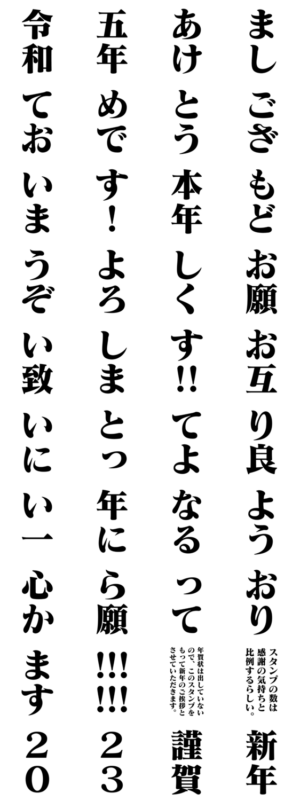 令和 五年 あけ まし
てお めで とう ござ
いま す！ 本年 もど
うぞ よろ しく お願
い致 しま す!! お互
いに とっ てよ り良
い一 年に なる よう
心か ら願 って おり
ます !!!!!!
年賀状は出していない
ので、このスタンプを
もって新年のご挨拶と
させていただきます。
スタンプの数は
感謝の気持ちと
比例するらしい。
20 23 謹賀 新年